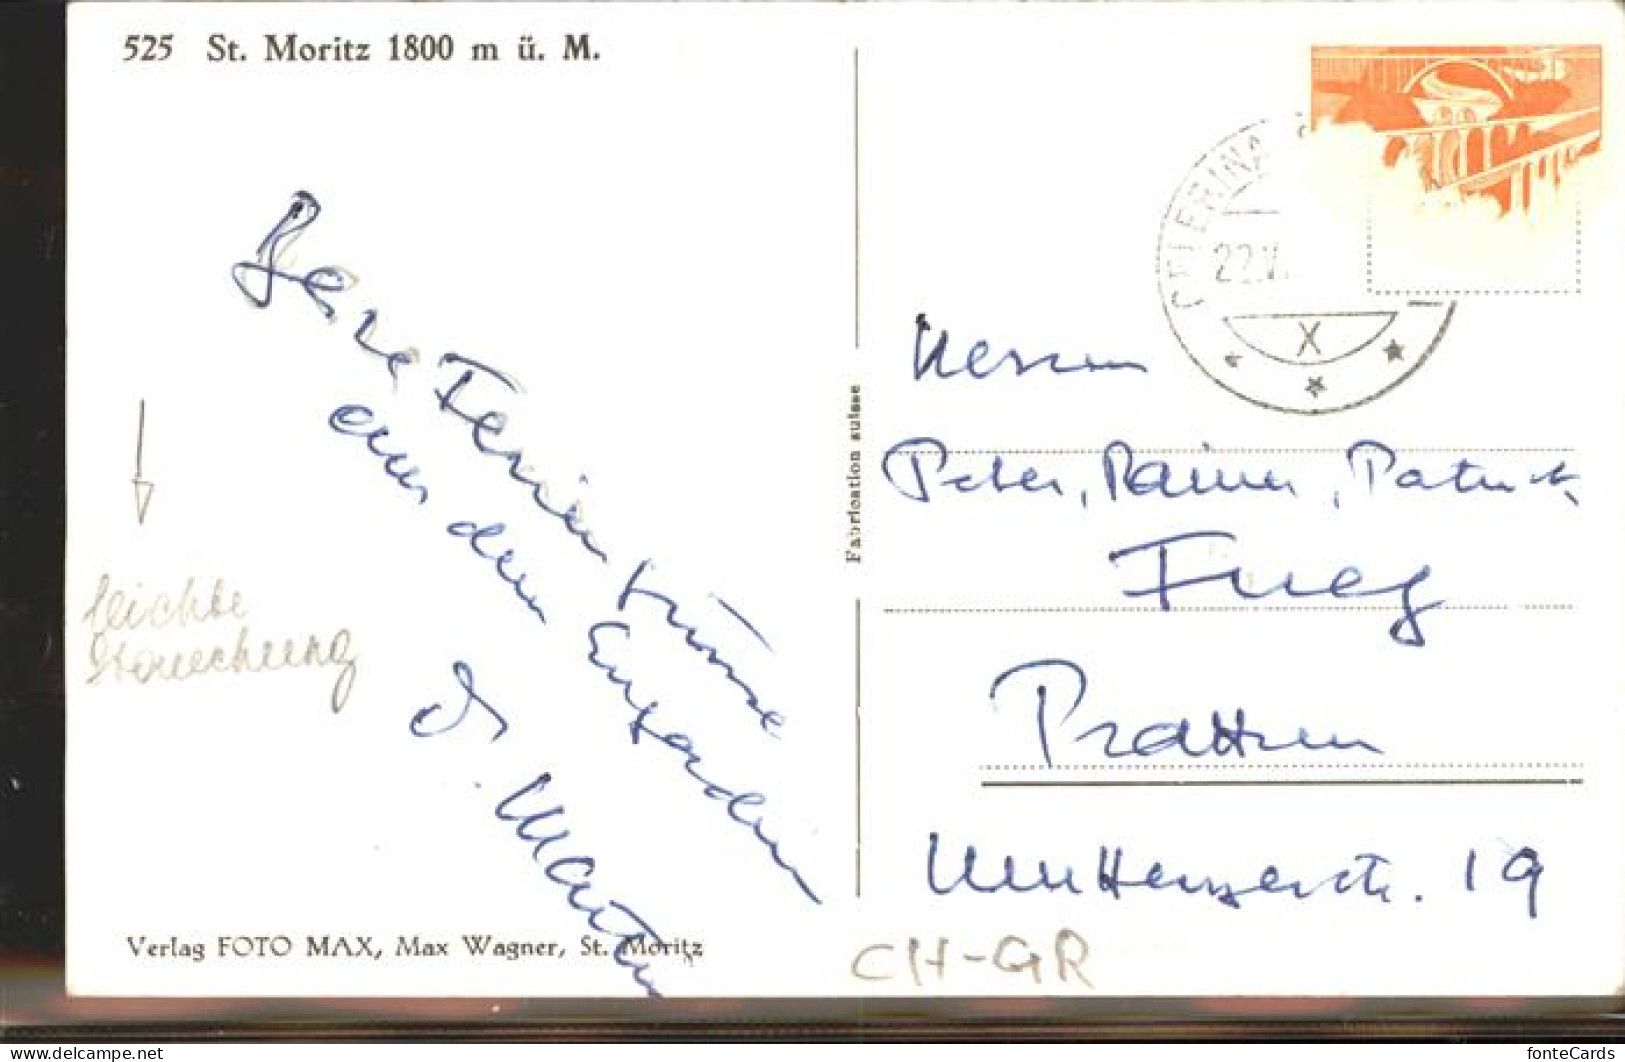 525 St. Moritz 1800 m ü. M.
CELERINA
22.V
X
Beste Feriengrüsse
aus dem Engadin
Dr. Martin
leichte
Stauchung
Verlag FOTO MAX, Max Wagner, St. Moritz
Fabrication suisse
Herren
Peter, Rainer, Patrick
Fueg
Pratteln
Muttenzerstr. 19
CH-GR
www.delcampe.net
fonteCards